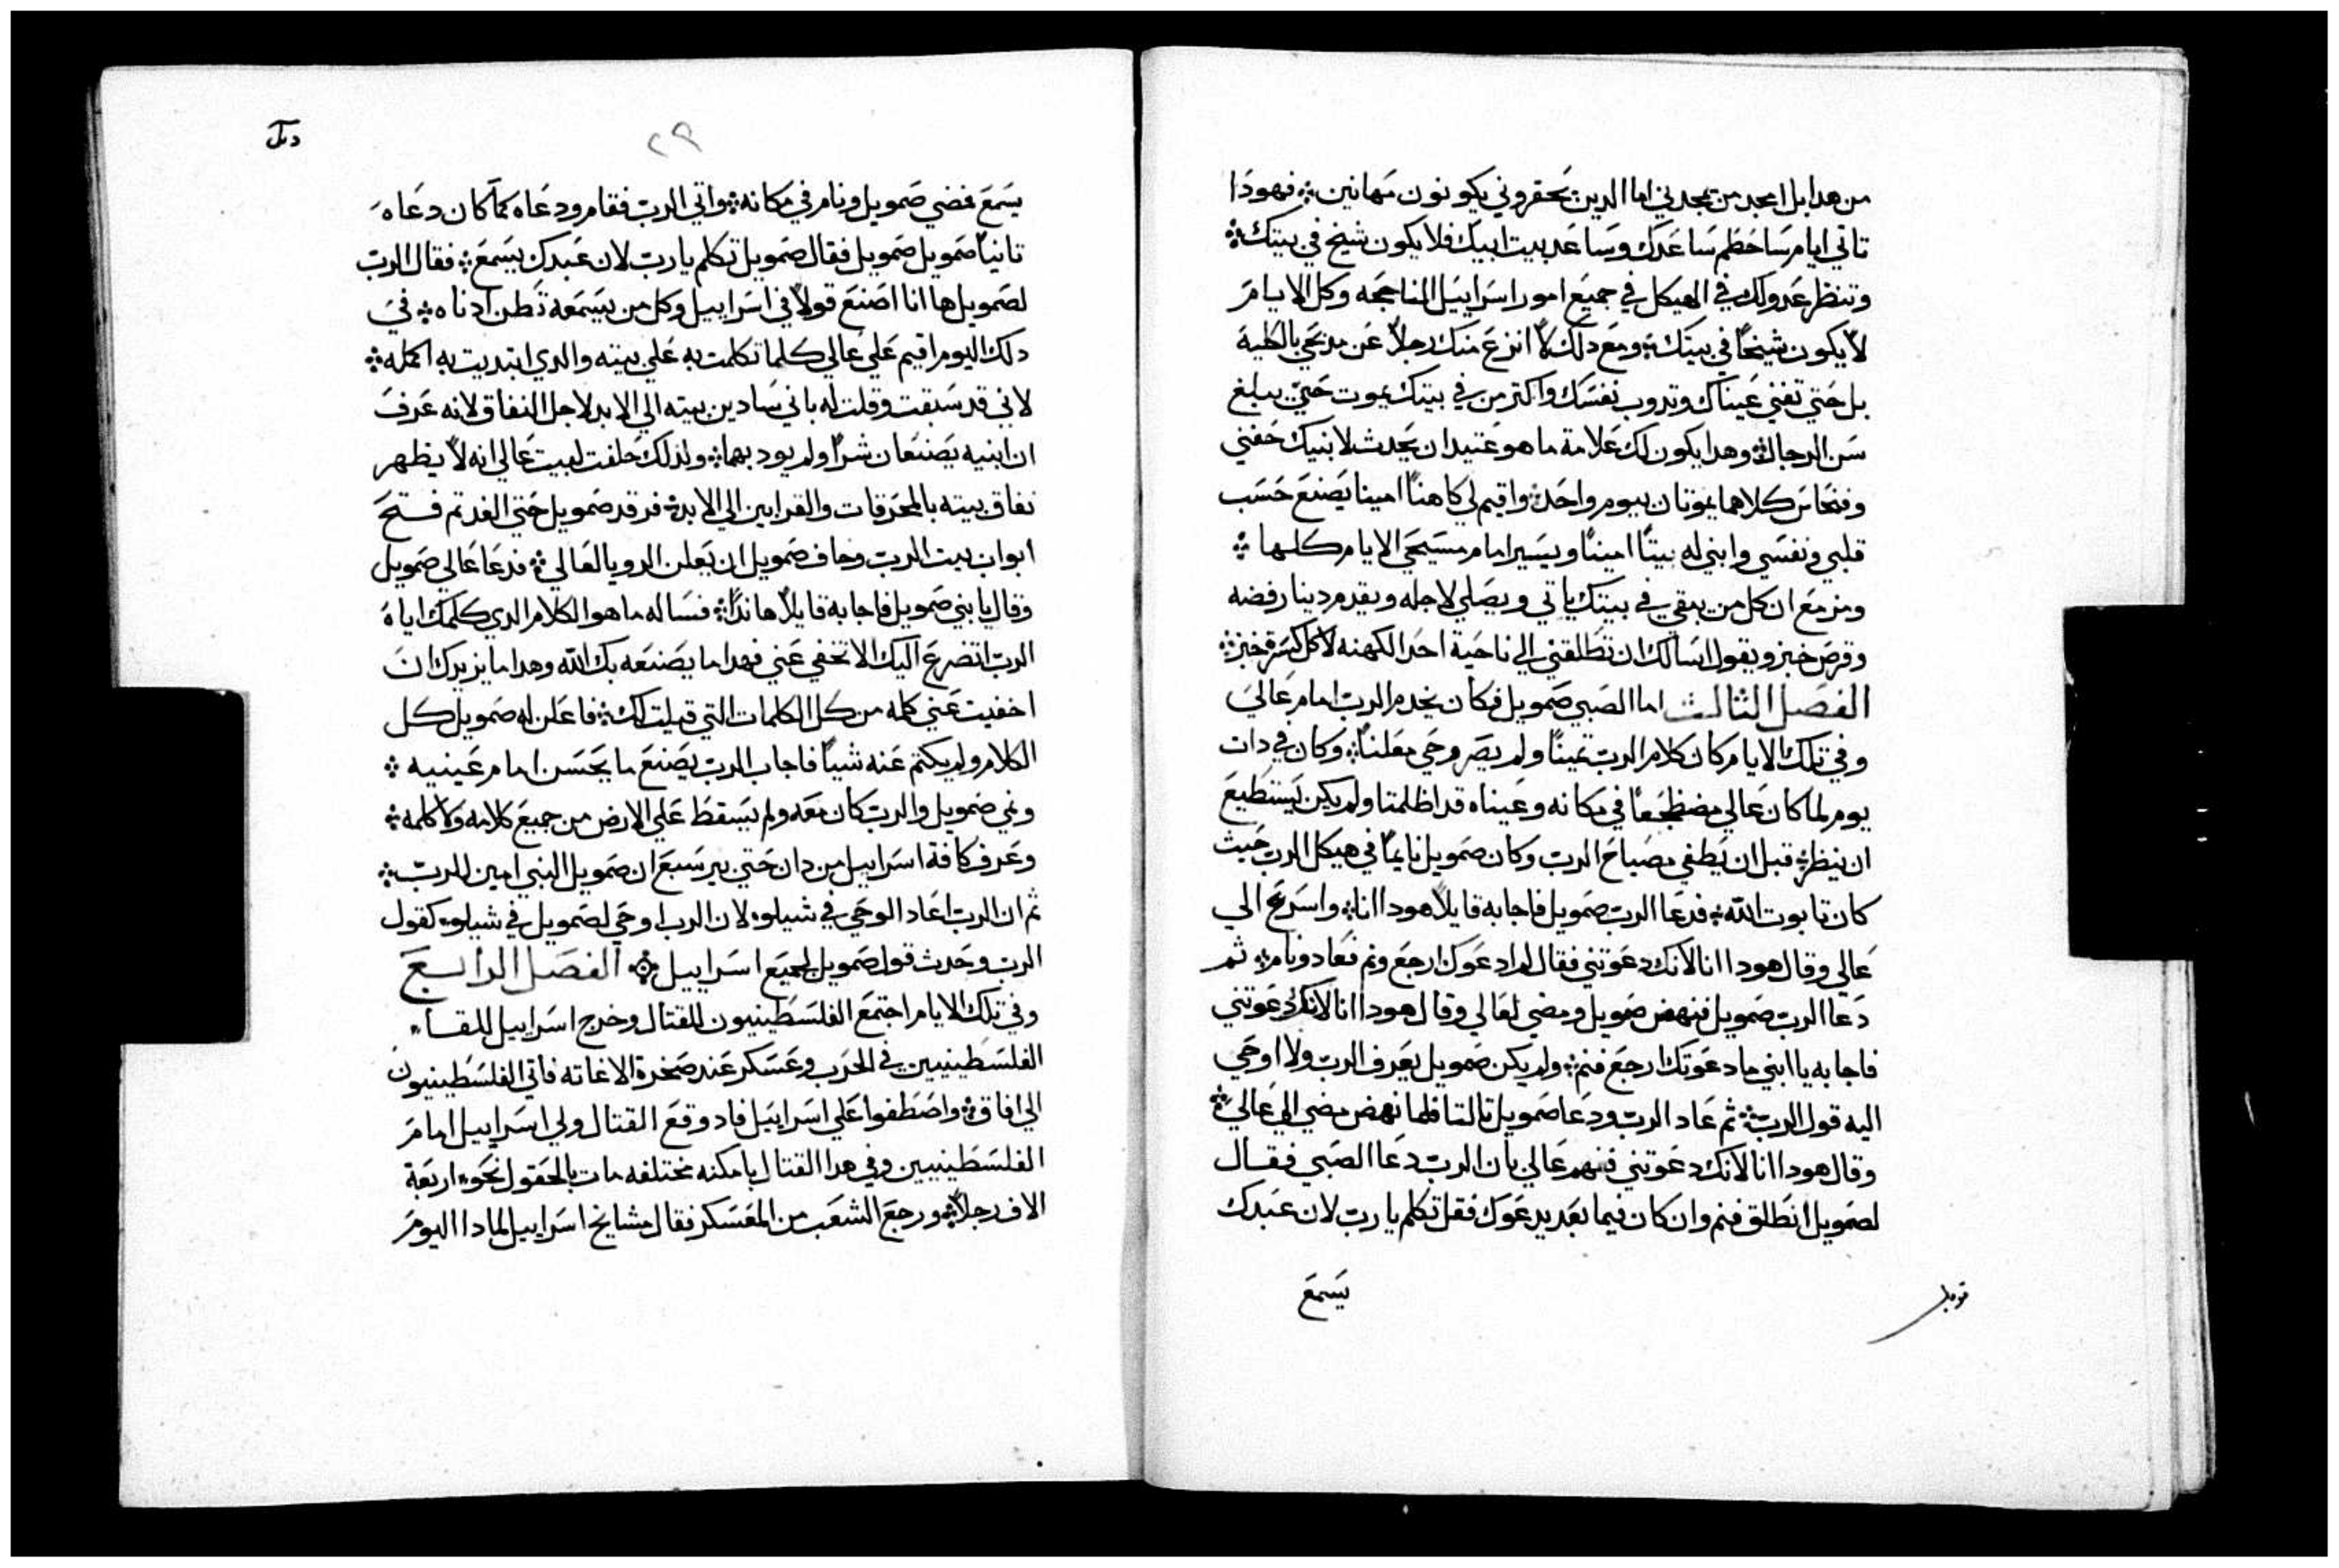 من هدا بل امجد من يمجدني اما الدين يحقروني يكونون مهانين ۞ فهودا
تاتي ايام ساحطم ساعدك وساعد بيت ابيك فلا يكون شيخ في بيتك ۞
وتنظر عدوك في الهيكل في جميع امور اسراييل الناجحه وكل الايام
لا يكون شيخًا في بيتك ۞ ومع دلك لا انزع منك رجلاً عن مدبحي بالكلية
بل حتي تفني عيناك وتدوب نفسك واكتر من في بيتك يموت حتي يبلغ
سن الرجال ۞ وهدا يكون لك علامة ما هو عتيد ان يحدث لابنيك حفني
وفنحاس كلاهما يموتان بيوم واحد ۞ واقيم لي كاهنًا امينا يصنع حسب
قلبي ونفسي وابني له بيتًا امينًا ويسير امام مسيحي الايام كلها ۞
ومزمع ان كل من يبقي في بيتك ياتي ويصلي لاجله ويقدم دينار فضه
وقرص خبز ويقول اسالك ان تطلقني الي ناحية احد الكهنه لاكل كسرة خبز ۞
الفصل الثالث اما الصبي صمويل فكان يخدم الرب امام عالي
وفي تلك الايام كان كلام الرب تمينًا ولم يصر وحي معلنًا ۞ وكان في دات
يوم لما كان عالي مضطجعًا في مكانه وعيناه قد اظلمتا ولم يكن يستطيع
ان ينظر ۞ قبل ان يطفي مصباح الرب وكان صمويل نايمًا في هيكل الرب حيث
كان تابوت الله ۞ فدعا الرب صمويل فاجابه قايلاً هودا انا ۞ واسرع الي
عالي وقال هودا انا لانك دعوتني فقال لم ادعوك ارجع ونم فعاد ونام ۞ ثم
دعا الرب صمويل فنهض صمويل ومضي لعالي وقال هودا انا لانك دعوتني
فاجابه يا ابني ما دعوتك ارجع فنم ۞ ولم يكن صمويل يعرف الرب ولا اوحي
اليه قول الرب ۞ ثم عاد الرب ودعا صمويل تالتا فلما نهض مضي الي عالي ۞
وقال هودا انا لانك دعوتني ففهم عالي بان الرب دعا الصبي فقال
لصمويل انطلق فنم وان كان فيما بعد يدعوك فقل تكلم يا رب لان عبدك
يسمع
٢٩
يسمع فمضي صمويل ونام في مكانه ۞ واتي الرب فقام ودعاه كما كان دعاه
تانيًا صمويل صمويل فقال صمويل تكلم يا رب لان عبدك يسمع ۞ فقال الرب
لصمويل ها انا اصنع قولاً في اسراييل وكل من يسمعه تطن ادناه ۞ في
دلك اليوم اقيم علي عالي كلما تكلمت به علي بيته والدي ابتديت به اكمله ۞
لاني قد سبقت وقلت له باني سادين بيته الي الابد لاجل النفاق لانه عرف
ان ابنيه يصنعان شرًا ولم يودبهما ۞ ولدلك حلفت لبيت عالي انه لا يظهر
نفاق بيته بالمحرقات والقرابين الي الابد ۞ فرقد صمويل حتي الغد تم فتح
ابواب بيت الرب وخاف صمويل ان يعلن الرويا لعالي ۞ فدعا عالي صمويل
وقال يا بني صمويل فاجابه قايلاً هاندا ۞ فساله ما هو الكلام الدي كلمك اياه
الرب اتضرع اليك الا تخفي عني فهدا ما يصنعه بك الله وهدا ما يزيدك ان
اخفيت عني كلمه من كل الكلمات التي قيلت لك ۞ فاعلن له صمويل كل
الكلام ولم يكتم عنه شيًا فاجاب الرب يصنع ما يحسن امام عينيه ۞
ونمي صمويل والرب كان معه ولم يسقط علي الارض من جميع كلامه ولا كلمه ۞
وعرف كافة اسراييل من دان حتي بير سبع ان صمويل النبي امين للرب ۞
ثم ان الرب اعاد الوحي في شيلوه لان الرب اوحي لصمويل في شيلوه كقول
الرب وحدث قول صمويل لجميع اسراييل ۞ الفصل الرابع
وفي تلك الايام اجتمع الفلسطينيون للقتال وخرج اسراييل للقا
الفلسطينيين في الحرب وعسكر عند صخرة الاغاته فاتي الفلسطينيون
الي افاق ۞ واصطفوا علي اسراييل فاد وقع القتال ولي اسراييل امام
الفلسطينيين وفي هدا القتال بامكنه مختلفه مات بالحقول نحو اربعة
الاف رجلاً ۞ ورجع الشعب من المعسكر فقال مشايخ اسراييل لمادا اليوم